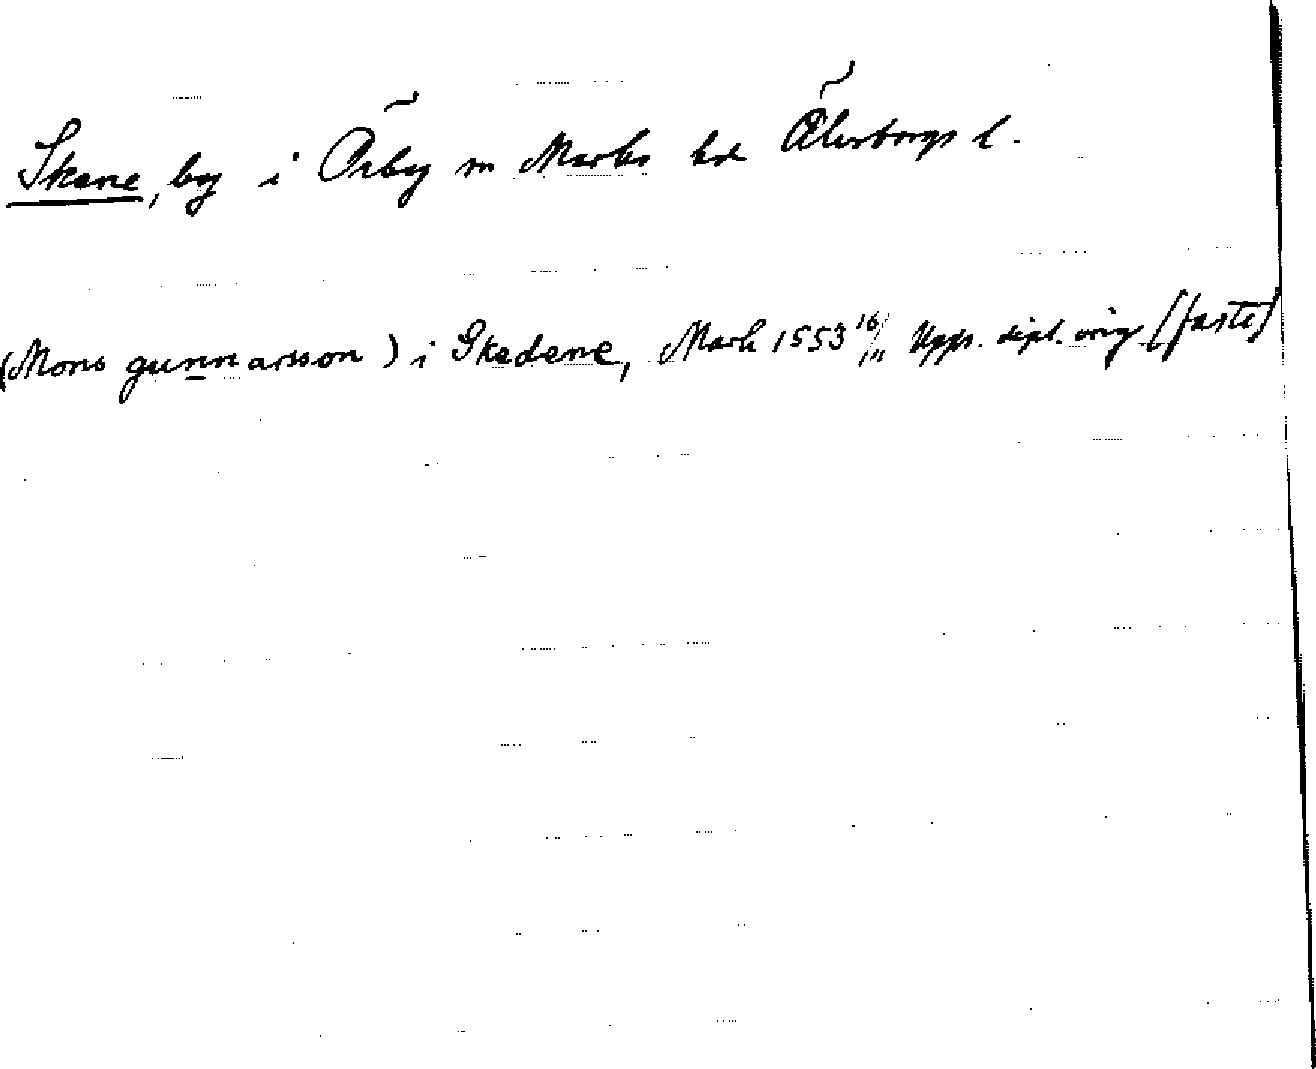 Skene, by i Örby sn Marks hd Älvsborgs l.
(Mons gunnarsson) i Skedene, Mark 1553 16/11 Upps. dipl. orig [faste]